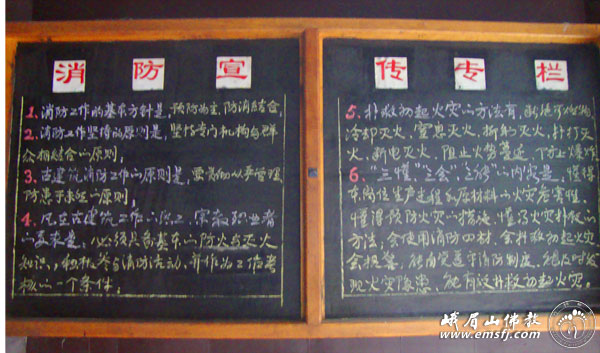 消防宣
传专栏
1、消防工作的基本方针是，预防为主，防消结合，
2、消防工作坚持的原则是，坚持专门机构与群
众相结合的原则，
3、古建筑消防工作的原则是，要贯彻从严管理
防患于未然的原则，
4、凡在古建筑工作的职工、宗教职业者
的要求是，必须具备基本的防火与灭火
知识，积极参与消防活动，并作为工作考
核的一个条件，
5、扑救初起火灾的方法有，
冷却灭火，窒息灭火，拆卸灭火，扑打灭
火，断电灭火，阻止火势蔓延，
6、“三懂”“三会”的内容是，懂得
本岗位生产过程或原材料的火灾危害性，
懂得预防火灾的措施，懂得火灾扑救的
方法，会使用消防器材，会扑救初起火灾，
会报警，能自觉遵守消防制度，能及时发
现火灾隐患，能有效扑救初起火灾，
峨眉山佛教
www.emsfj.com